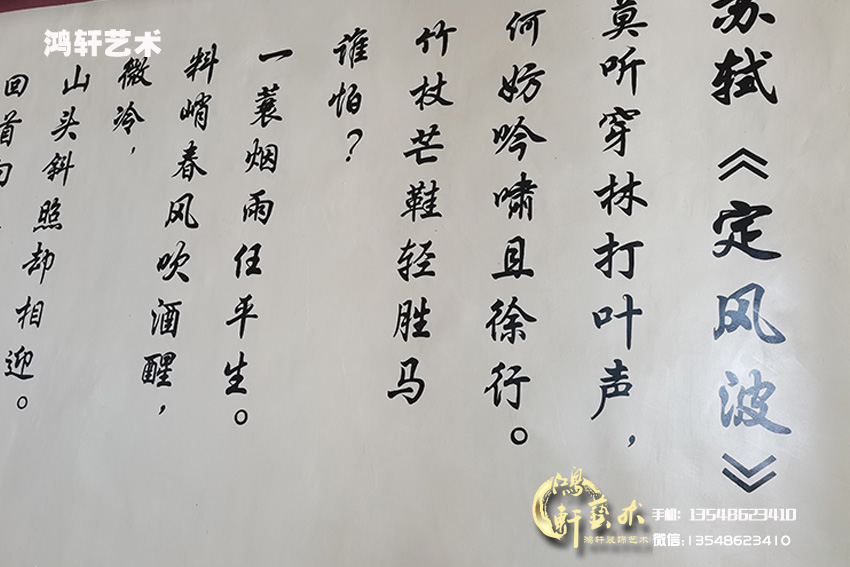 鸿轩艺术
苏轼《定风波》
莫听穿林打叶声，
何妨吟啸且徐行。
竹杖芒鞋轻胜马
谁怕？
一蓑烟雨任平生。
料峭春风吹酒醒，
微冷，
山头斜照却相迎。
回首向
鴻軒藝术
鸿轩装饰艺术
手机：13548623410
微信:13548623410